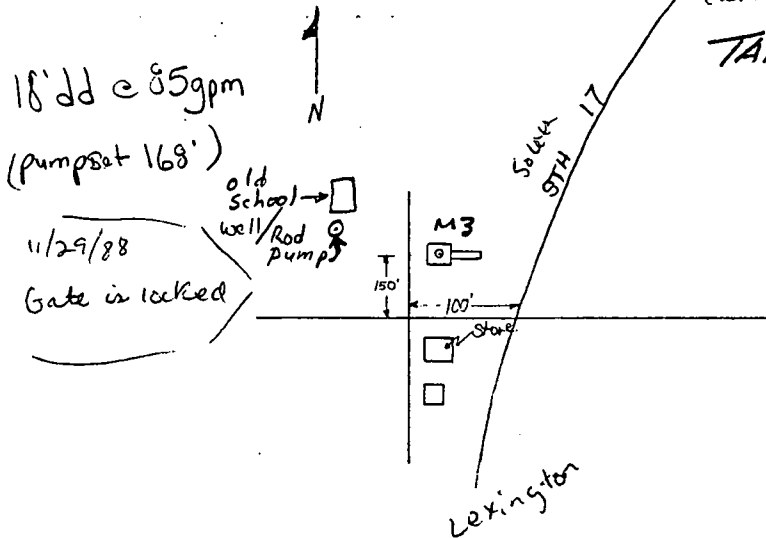 18' dd @ 85gpm
(pumpset 168')
N
old
School
well/Rod
Pump
11/29/88
Gate is locked
M3
150'
100'
Store
17
Lexington